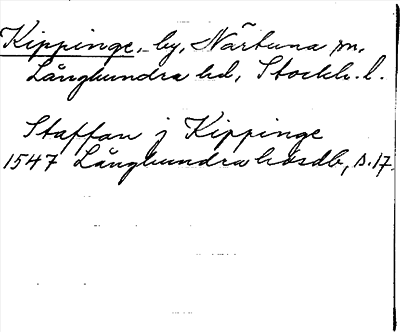 Kippinge, by, Närtuna sn,
Långhundra hd, Stockh. l.
Staffan j Kippinge
1547 Långhundra hdsdb, s. 17.